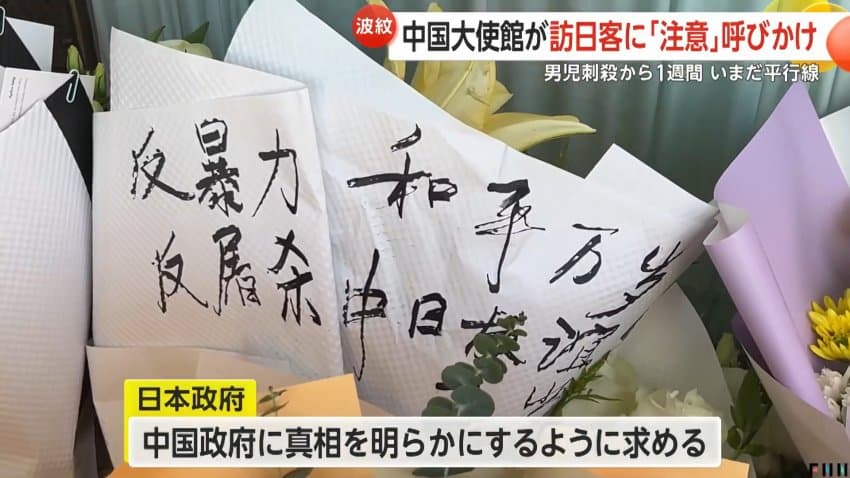 波紋
中国大使館が訪日客に「注意」呼びかけ
男児刺殺から1週間 いまだ平行線
反暴力
反屠杀
和平万岁
中日友谊
日本政府
中国政府に真相を明らかにするように求める
FNN